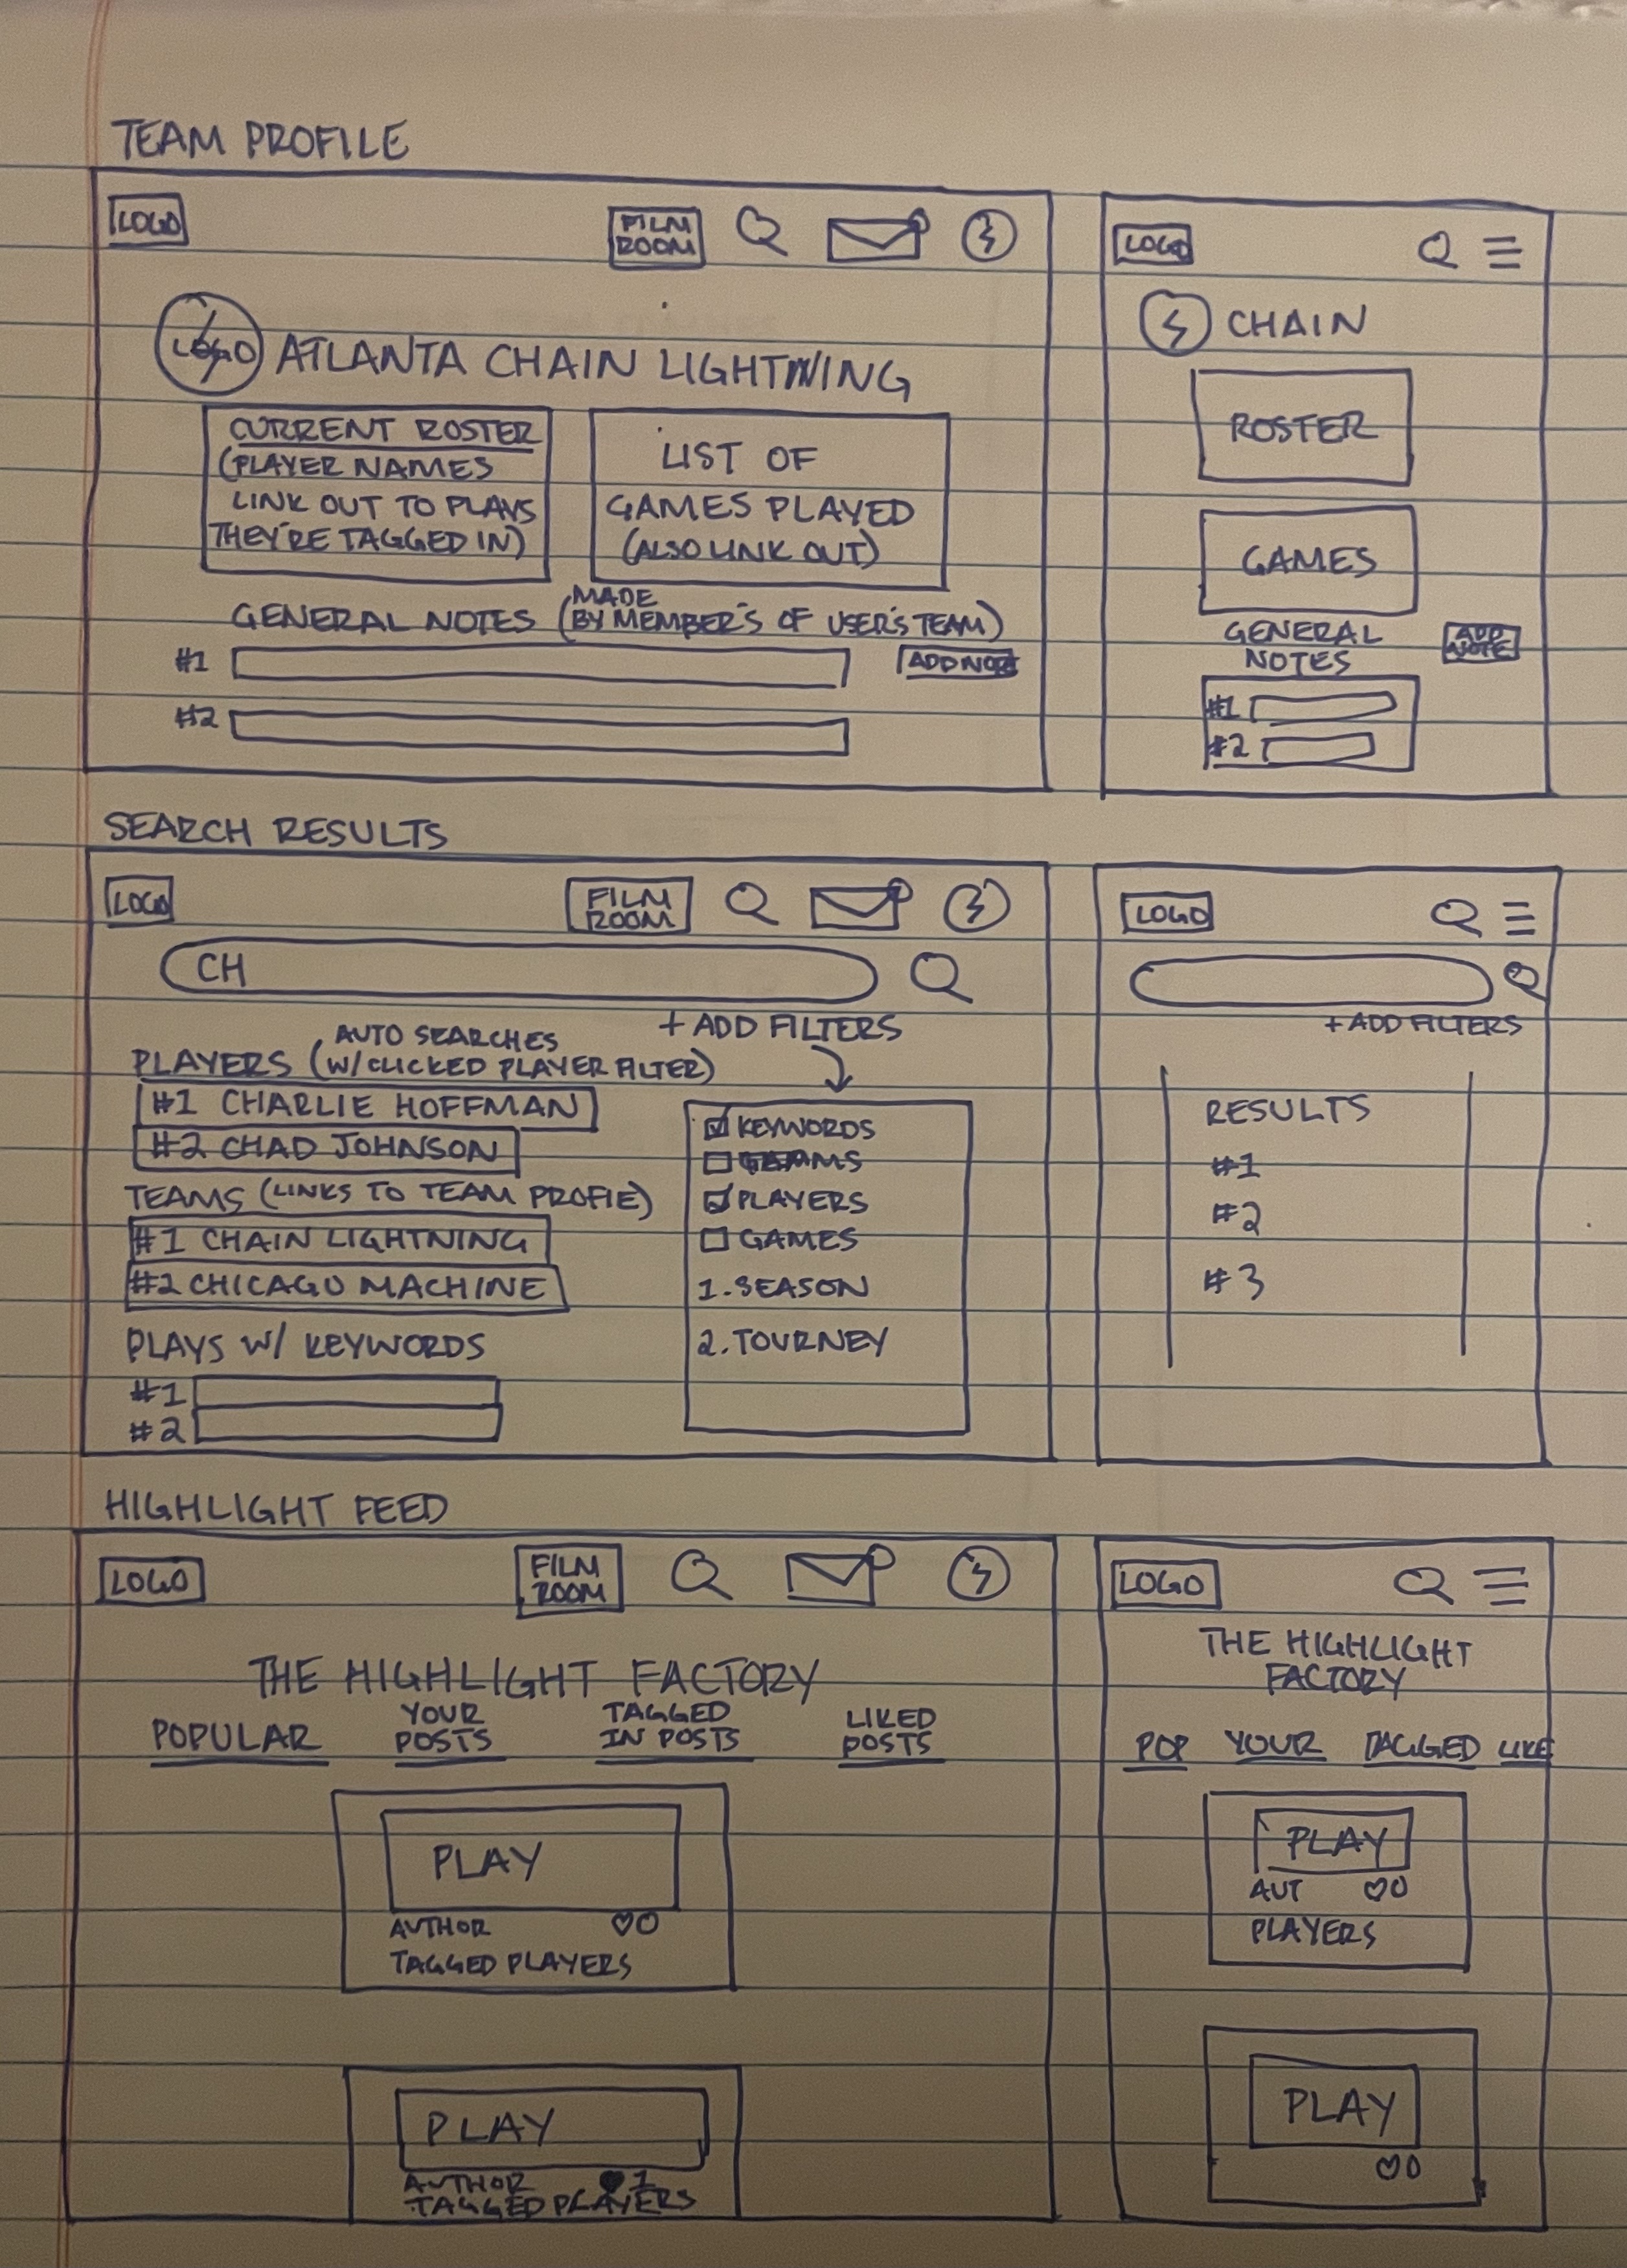 TEAM PROFILE
LOGO
FILM
ROOM
LOGO
ATLANTA CHAIN LIGHTNING
CURRENT ROSTER
(PLAYER NAMES
LINK OUT TO PLAYS
THEY'RE TAGGED IN)
LIST OF
GAMES PLAYED
(ALSO LINK OUT)
GENERAL NOTES (MADE
BY MEMBER'S OF USER'S TEAM)
#1
ADD NOTE
#2
LOGO
CHAIN
ROSTER
GAMES
GENERAL
NOTES
ADD
NOTE
#1
#2
SEARCH RESULTS
LOGO
FILM
ROOM
CH
+ ADD FILTERS
PLAYERS (AUTO SEARCHES
W/ CLICKED PLAYER FILTER)
#1 CHARLIE HOFFMAN
#2 CHAD JOHNSON
TEAMS (LINKS TO TEAM PROFIE)
#1 CHAIN LIGHTNING
#2 CHICAGO MACHINE
PLAYS W/ KEYWORDS
#1
#2
KEYWORDS
PLAYERS
GAMES
1. SEASON
2. TOURNEY
LOGO
+ ADD FILTERS
RESULTS
#1
#2
#3
HIGHLIGHT FEED
LOGO
FILM
ROOM
THE HIGHLIGHT FACTORY
POPULAR
YOUR
POSTS
TAGGED
IN POSTS
LIKED
POSTS
PLAY
AUTHOR 0
TAGGED PLAYERS
PLAY
AUTHOR 1
TAGGED PLAYERS
LOGO
THE HIGHLIGHT
FACTORY
POP YOUR TAGGED LIKE
PLAY
AUT 0
PLAYERS
PLAY
0